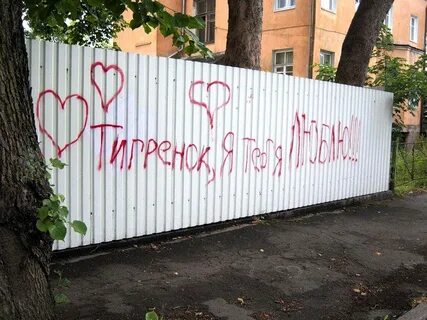 Тигренок, я тебя ЛЮБЛЮ!!!